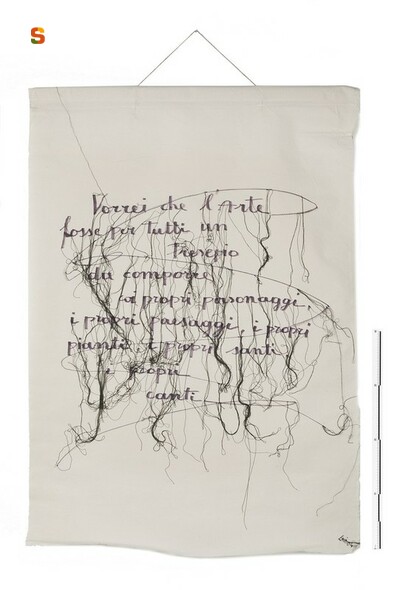 S
Vorrei che l'Arte
fosse per tutti un
Presepio
da comporre
ai propri personaggi,
i propri paesaggi, i propri
pianti, i propri santi
i propri
canti